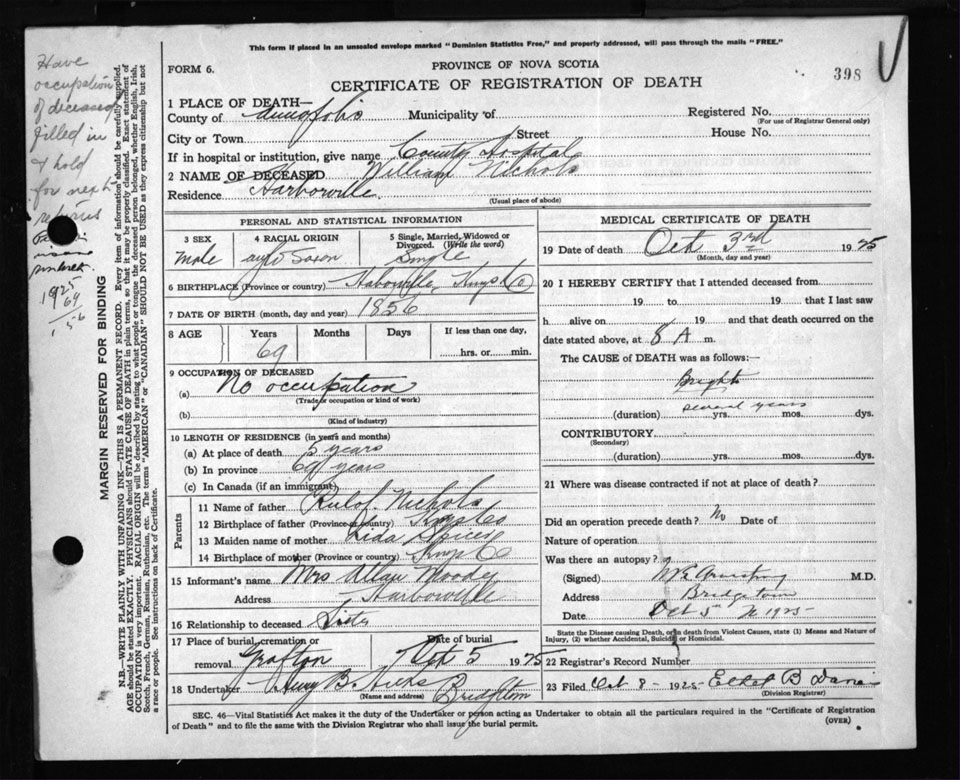 This form if placed in an unsealed envelope marked "Dominion Statistics Free," and properly addressed, will pass through the mails "FREE."
FORM 6.
PROVINCE OF NOVA SCOTIA
398
CERTIFICATE OF REGISTRATION OF DEATH
1 PLACE OF DEATH—
County of Annapolis Municipality of Registered No.
(For use of Registrar General only)
City or Town Street House No.
If in hospital or institution, give name County Hospital
2 NAME OF DECEASED William Nichols
Residence Harborville
(Usual place of abode)
PERSONAL AND STATISTICAL INFORMATION
3 SEX 4 RACIAL ORIGIN 5 Single, Married, Widowed or
Divorced. (Write the word)
Male Saxon Single
6 BIRTHPLACE (Province or country) Kings Co
7 DATE OF BIRTH (month, day and year) 1856
8 AGE Years Months Days If less than one day,
69
hrs. or min.
9 OCCUPATION OF DECEASED
(a) No occupation
(Trade or occupation or kind of work)
(b)
(Kind of industry)
10 LENGTH OF RESIDENCE (in years and months)
(a) At place of death 5 years
(b) In province 69 years
(c) In Canada (if an immigrant)
Parents
11 Name of father Rulof Nichols
12 Birthplace of father (Province or country) Kings Co
13 Maiden name of mother Lida Spicer
14 Birthplace of mother (Province or country) Kings Co
15 Informant's name Mrs Allan Moody
Address Harborville
16 Relationship to deceased Sister
17 Place of burial, cremation or Date of burial
removal Grafton Oct 5 1925
18 Undertaker B. Hicks Bridgetown
(Name and address)
MEDICAL CERTIFICATE OF DEATH
19 Date of death Oct 3rd 1925
(Month, day and year)
20 I HEREBY CERTIFY that I attended deceased from
19 to 19 that I last saw
h alive on 19 and that death occurred on the
date stated above, at 8 A m.
The CAUSE of DEATH was as follows:
Brights
several years
(duration) yrs. mos. dys.
CONTRIBUTORY
(Secondary)
(duration) yrs. mos. dys.
21 Where was disease contracted if not at place of death?
Did an operation precede death? No Date of
Nature of operation
Was there an autopsy?
(Signed) Armstrong M.D.
Address Bridgetown
Date Oct 5 1925
State the Disease causing Death, or in death from Violent Causes, state (1) Means and Nature of
Injury, (2) whether Accidental, Suicidal or Homicidal.
22 Registrar's Record Number
23 Filed Oct 8 1925 B
(Division Registrar)
SEC. 46—Vital Statistics Act makes it the duty of the Undertaker or person acting as Undertaker to obtain all the particulars required in the "Certificate of Registration
of Death" and to file the same with the Division Registrar who shall issue the burial permit. (OVER)
MARGIN RESERVED FOR BINDING
N.B.—WRITE PLAINLY WITH UNFADING INK—THIS IS A PERMANENT RECORD. Every item of information should be carefully supplied.
AGE should be stated EXACTLY. PHYSICIANS should STATE CAUSE OF DEATH in plain terms, so that it may be properly classified. Exact statement of
OCCUPATION is very important. RACIAL ORIGIN will be described by stating to what people or tongue the deceased person belonged, whether English, Irish,
Scotch, French, German, Russian, Ruthenian, etc. The terms "AMERICAN" or "CANADIAN" SHOULD NOT BE USED as they express citizenship but not
a race or people. See instructions on back of Certificate.
Have
occupation
of deceased
filled in
& hold
for next
returns
1925
69